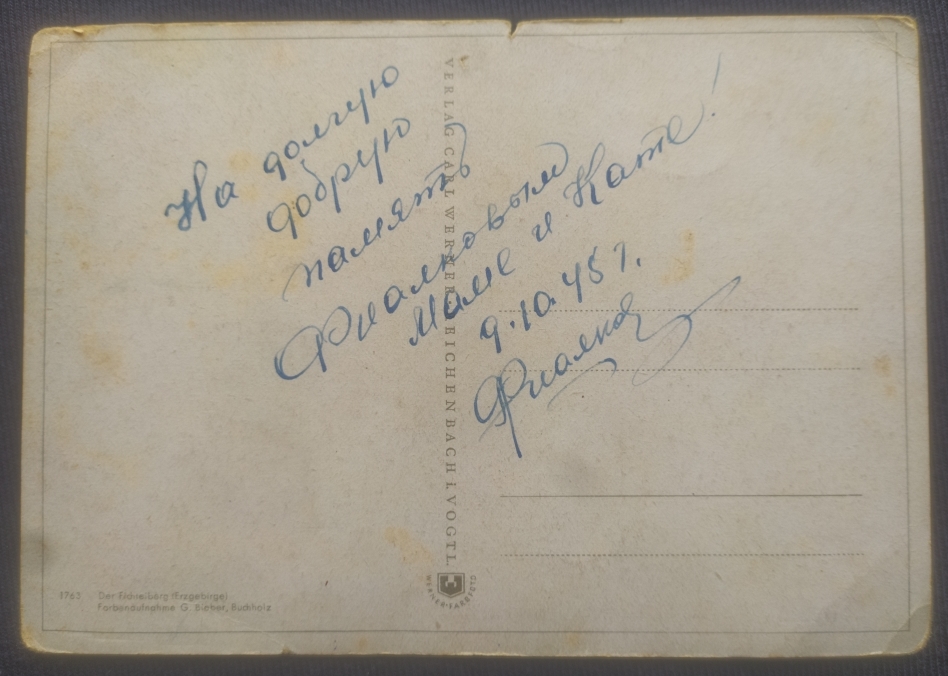 На долгую
добрую
память
Фиалковым
Маме и Кате!
9.10.45 г.
Фиалков
VERLAG CARL WERNER, REICHENBACH I. VOGTL.
WERNER-FARBFOTO
1763 Der Fichtelberg (Erzgebirge)
Farbenaufnahme G. Bieber, Buchholz